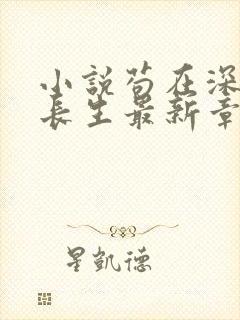 小説苟在深
長生最新章
星凱德